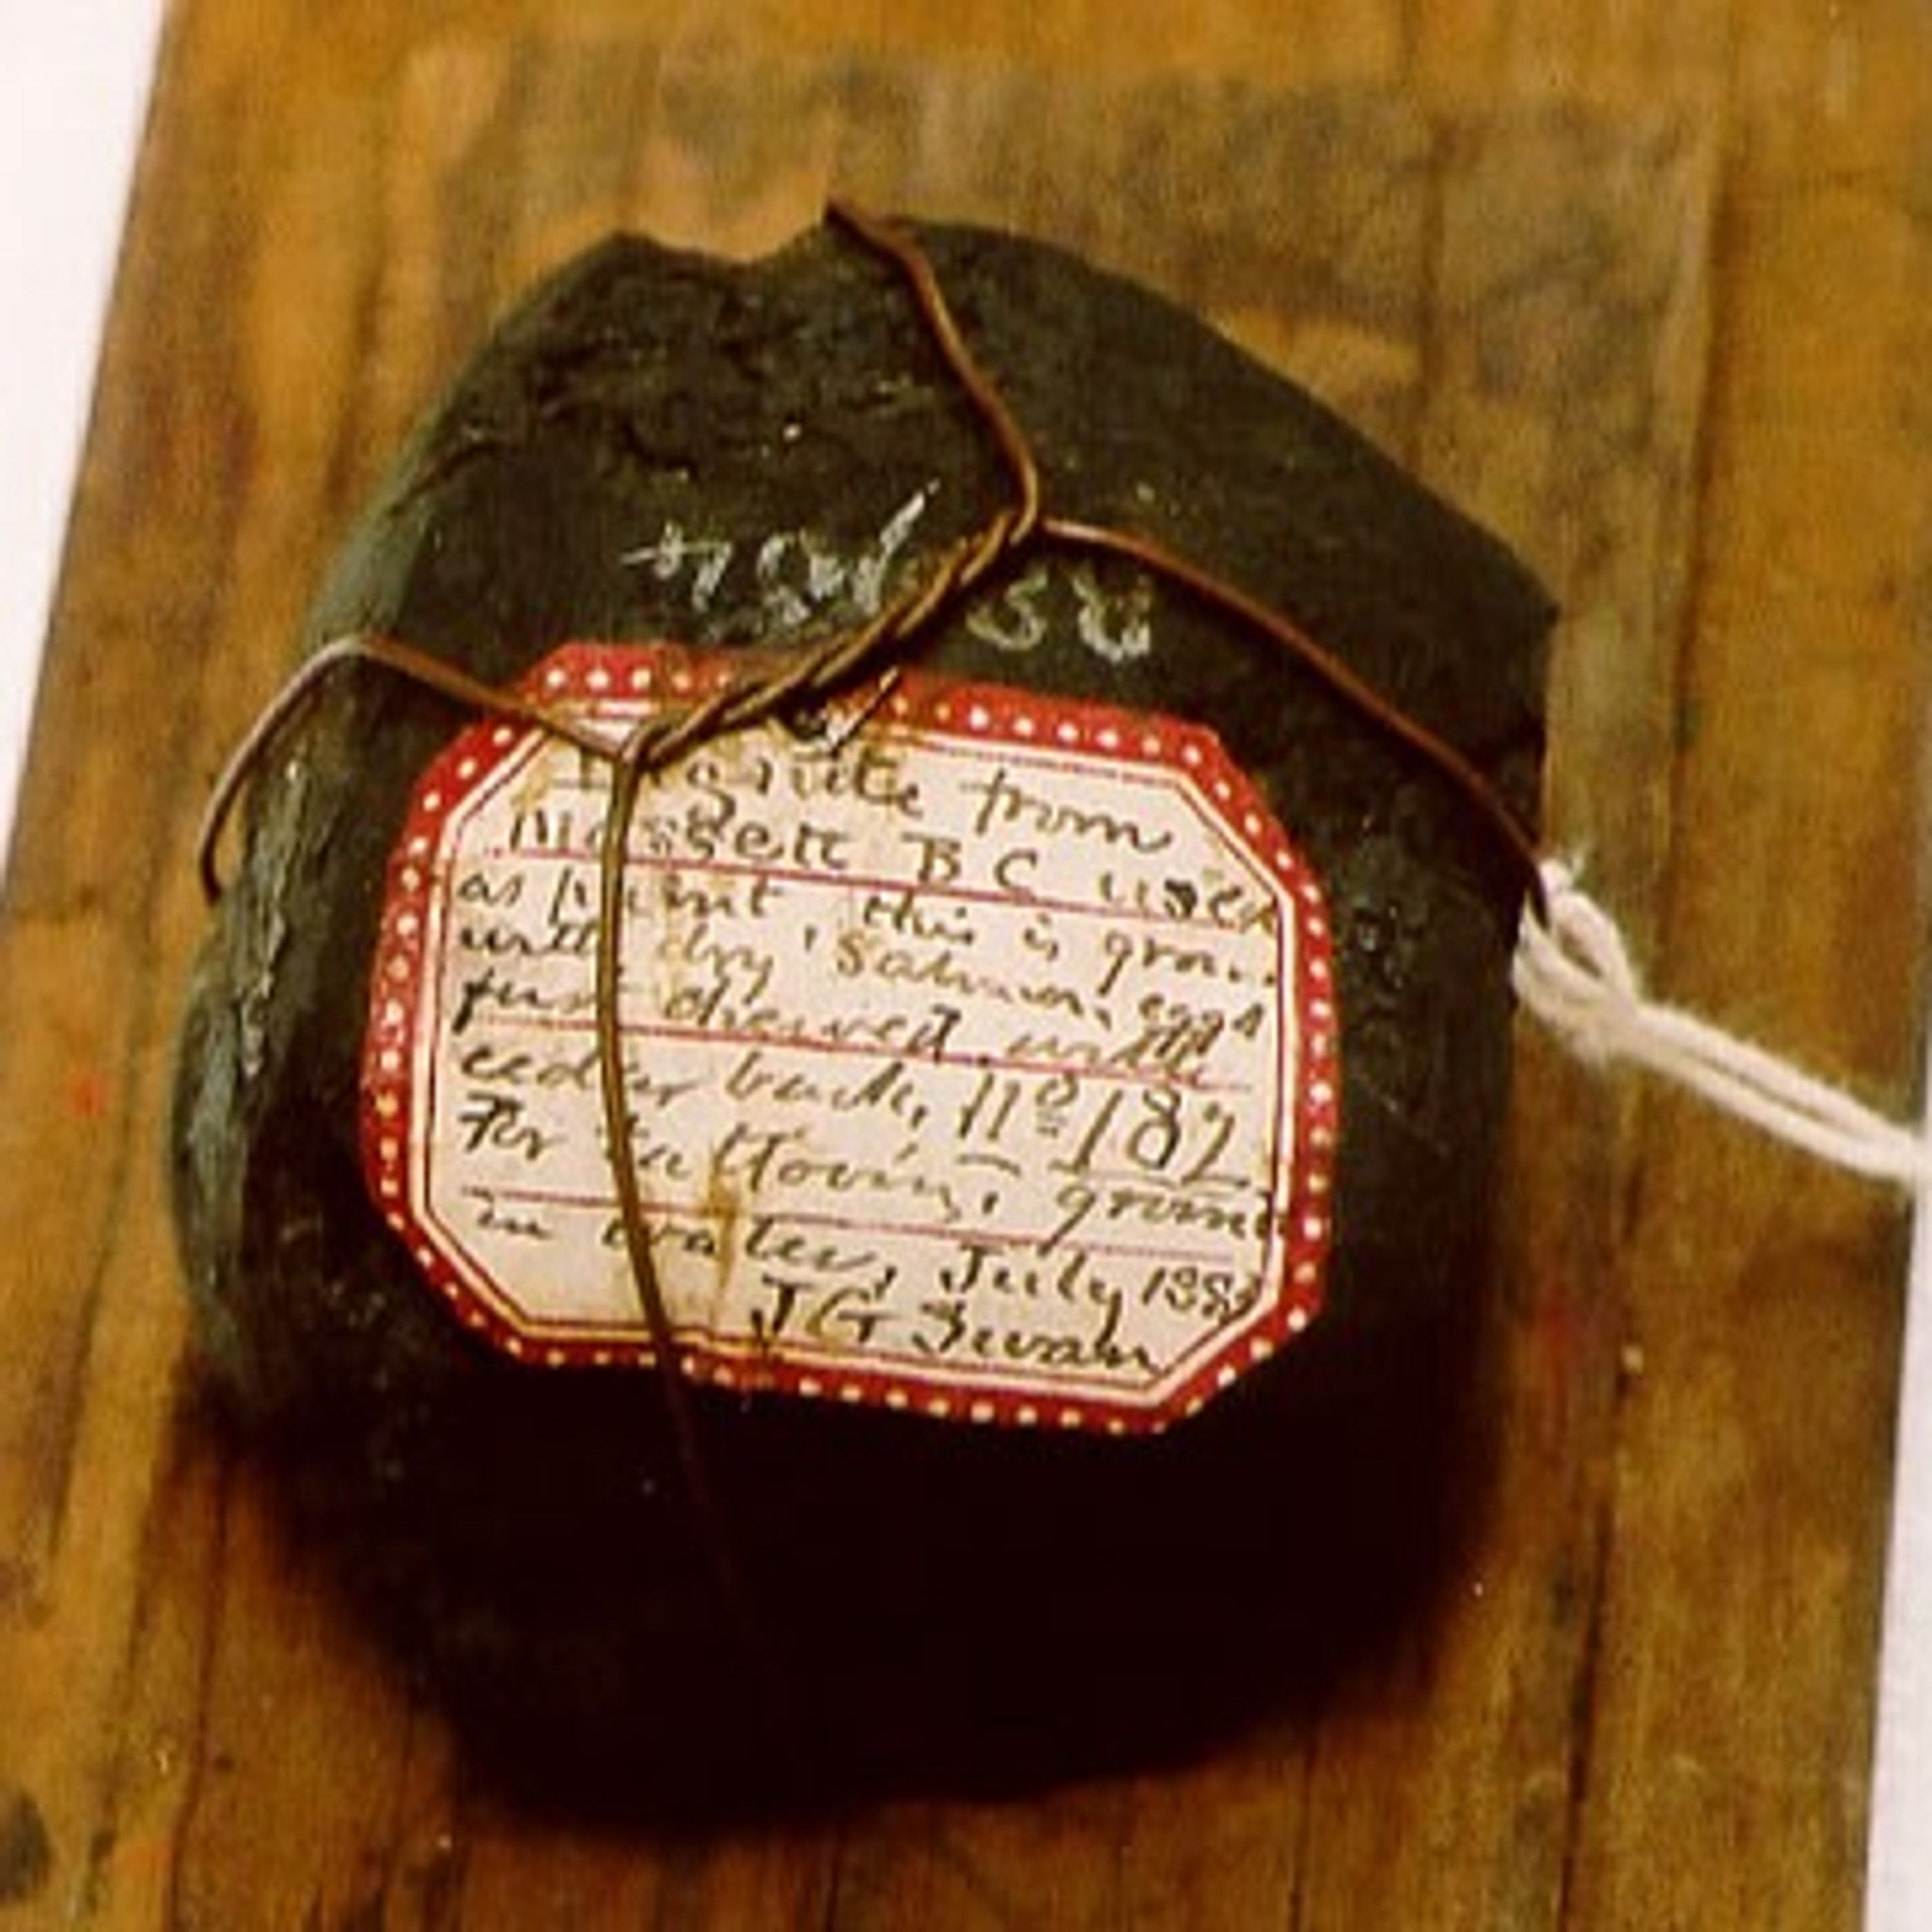 Lignite from
Massett BC used
as paint, this is
with dry Salmon eggs
first chewed with
cedar bark, No 182
For tattooing, ground
in water, July
J G Swan